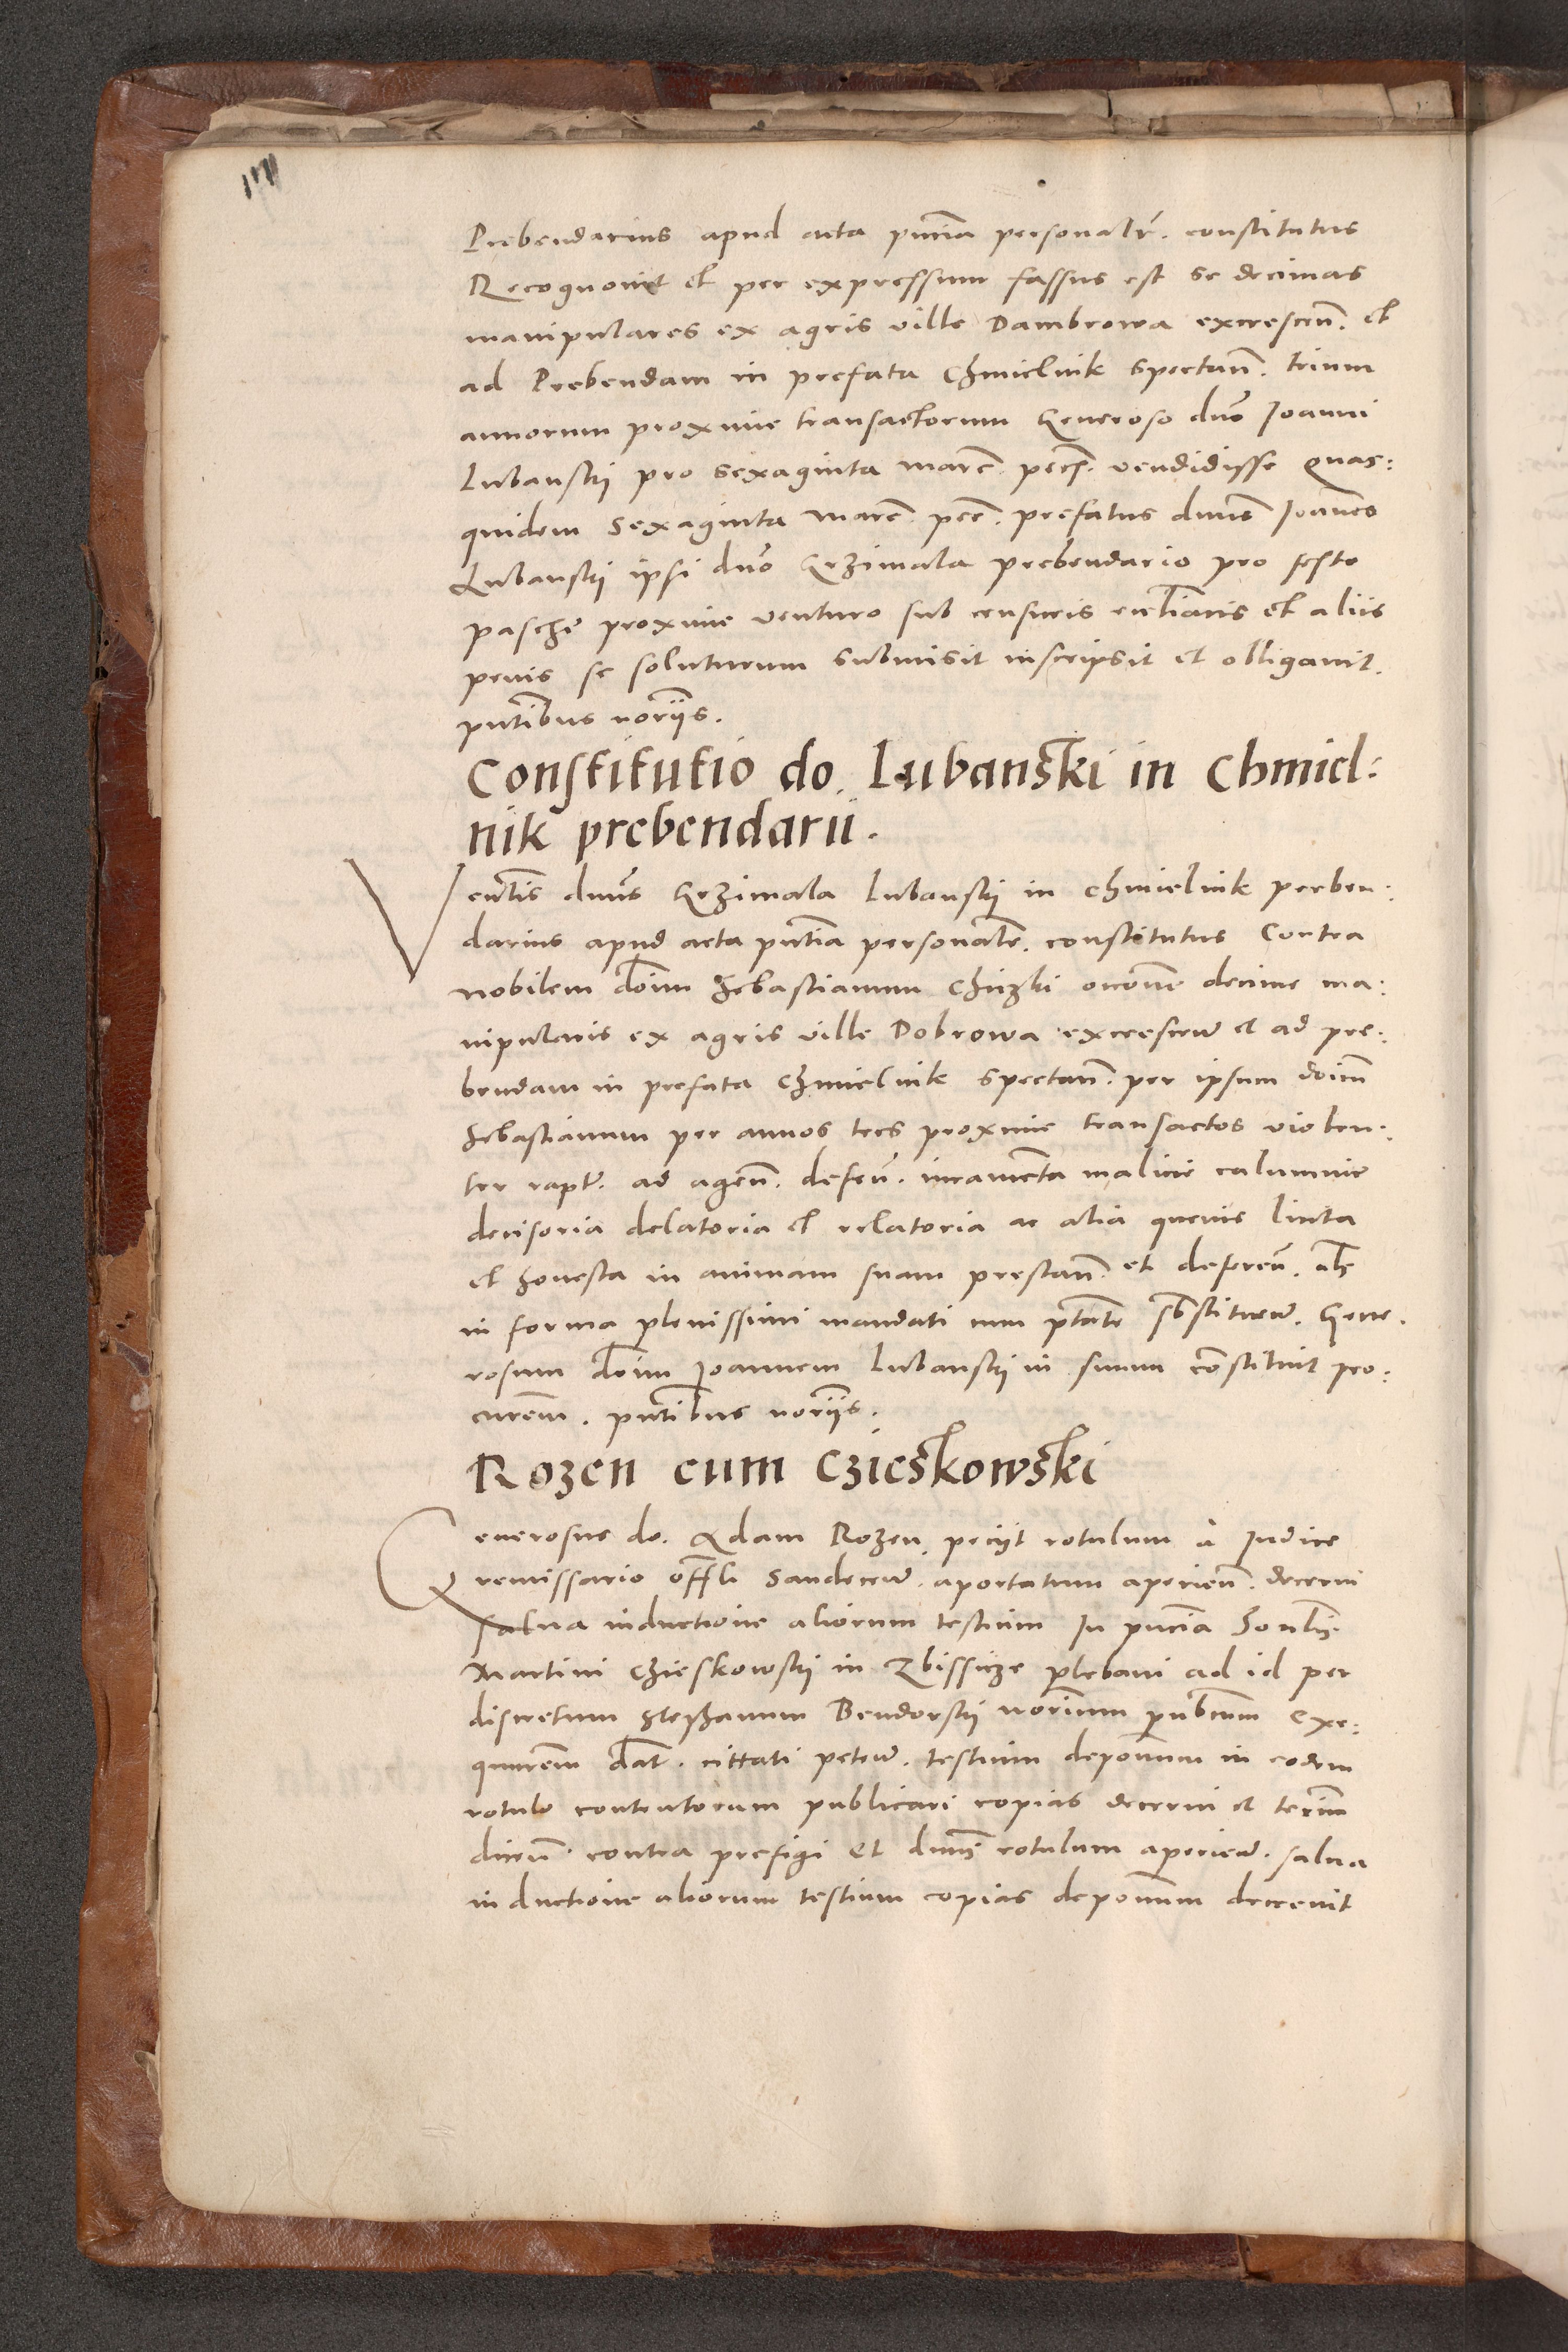 Prebendarius apud acta pñcia personalr̃. constitutus
Recognovit et per expressum fassus est se decimas
manipulares ex agris ville Dambrowa excrescen̄. et
ad Prebendam in prefata Chmielnik spectan̄. trium
annorum proxime transactorum Generoso dno Ioanni
Lubanskij pro sexaginta marc̄. pec̄. vendidisse Quas:
quidem sexaginta marc̄. pec̄. prefatus dnus Ioannes
Lubanskij ipsi dno Grzimala prebendario pro festo
pasche proxime venturo sub censuris ecclīacis et aliis
penis se soluturum submisit inscripsit et obligavit.
pñtibus noriis.
Constitutio do. Lubanski in Chmiel:
nik prebendarii.
Venlis dnus Grzimala Lubanskij in Chmielnik preben:
darius apud acta pñtia personalr̃. constitutus Contra
nobilem doim Sebastianum occoñe decime ma:
nipularis ex agris ville Dobrowa excrescen̄ et ad pre:
bendam in prefata Chmielnik spectan̄. per ipsum doim
Sebastianum per annos tres proxime transactos violen:
ter rapt̄. ad agen̄. defen̄. iuramenta malicie calumnie
decisoria delatoria et relatoria ac alia quevis licita
et honesta in animam suam prestan̄. et deferen̄. als
in forma plenissimi mandati cum ptate sbstituen̄. Gene.
rosum doim Joannem Lubanskij in suum constituit pro:
curem̄. pñtibus noriis.
Rozen cum Czieskowski
Generosus do. Adam Rozen. peciit rotulum a Iudice
remissario offli Sandecen̄. aportatum aperien̄. decerni
salva inductione aliorum testium In pñcia honlis
Martini Czieskowskij in Zbissicze plebani ad id per
discretum Stephanum Bendorskij norium publicum exe:
quurem̄ dat. cittati peten̄. testium deponum in eodem
rotulo contentorum publicari copias decerni et terim
dicen̄. contra prefigi Et dnus rotulum aperien̄. salva
inductione aliorum testium copias deponum decrevit